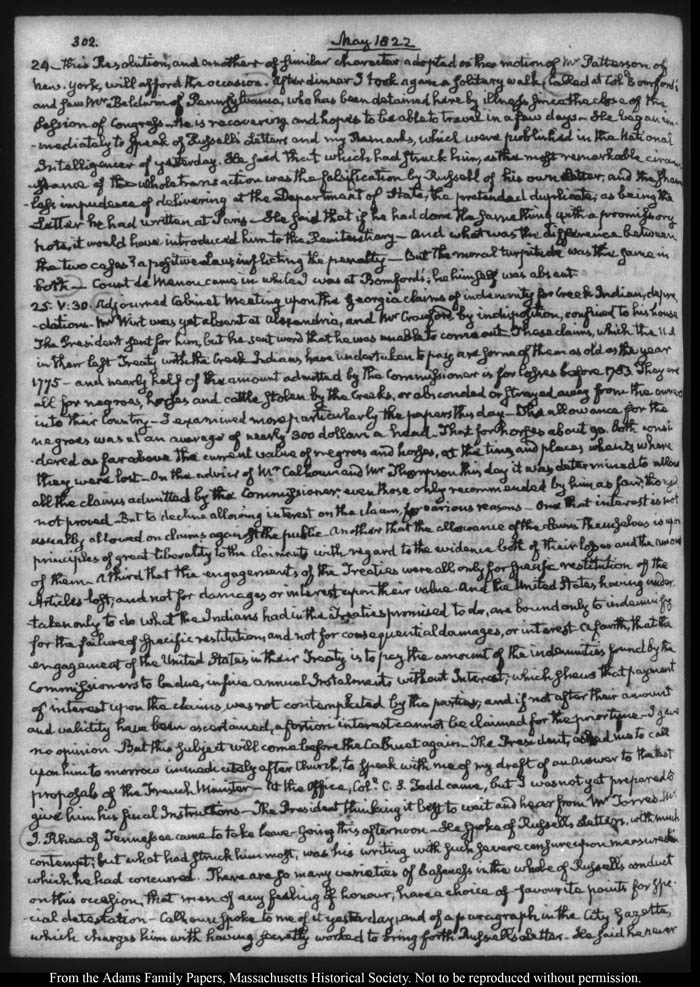 302.
May 1822
24— this Resolution, and another of similar character adopted on the motion of Mr Patterson of
New-York, will afford the occasion. After dinner I took again a solitary walk. Called at Col. Bomford's
and saw Mr Baldwin of Pennsylvania, who has been detained here by illness since the close of the
Session of Congress— He is recovering and hopes to be able to travel in a few days— He began im-
-mediately to speak of Russell's Letters and my Remarks, which were published in the National
Intelligencer of yesterday. He said that which had struck him, as the most remarkable circum
stance of the whole transaction was the falsification by Russell of his own Letter, and the shame
-less impudence of delivering at the Department of State, the pretended duplicate; as being the
Letter he had written at Paris— He said that if he had done the same thing with a promissory
note, it would have introduced him to the Penitentiary— And what was the difference between
the two cases? a positive Law inflicting the penalty— But the moral turpitude was the same in
both— Count de Menou came in while I was at Bomford's; he himself was absent.
25. V:30. Adjourned Cabinet Meeting upon the Georgia claims of indemnity for Creek Indian, depre,
-dations. Mr Wirt was yet absent at Alexandria, and Mr Crawford by indisposition, confined to his house
The President sent for him, but he sent word that he was unable to come out. These claims, which the U.S.
in their last Treaty with the Creek Indians have undertaken to pay are some of them as old as the year
1775— and nearly half of the amount admitted by the Commissioner is for losses before 1783. They are
all for negroes, horses and cattle stolen by the Creeks, or absconded or strayed away from the owners
into their Country— I examined more particularly the papers this day— The allowance for the
negroes was at an average of nearly 300 dollars a head. That for horses about 90. both consi
-dered as far above the current value of negroes and horses, at the times and places when & where
they were lost— On the advice of Mr Calhoun and Mr Thompson this day it was determined to allow
all the claims admitted by the Commissioner even those only recommended by him as fair, though
not proved. But to decline allowing interest on the claims, for various reasons— One that interest is not
usually allowed on claims against the public. Another that the allowance of the claims themselves is upon
principles of great liberality to the claimants with regard to the evidence both of their losses and the amount
of them— A third that the engagements of the Treaties were all only for specific restitution of the
Articles lost; and not for damages or interest upon their value. And the United States having under
taken only to do what the Indians had in the Treaties promised to do, are bound only to indemnify
for the failure of specific restitution, and not for consequential damages, or interest. A fourth, that the
engagement of the United States in their Treaty is to pay the amount of the indemnities found by the
Commissioners to be due, in five annual Instalments without Interest; which shews that payment
of interest upon the claims, was not contemplated by the parties, and if not after their amount
and validity have been ascertained, a fortiori interest cannot be claimed for the prior time— I gave
no opinion— But this subject will come before the Cabinet again— The President, asked me to call
upon him to morrow immediately after Church, to speak with me of my draft of an answer to the last
proposals of the French Minister— At the Office, Col. C. S. Todd came, but I was not yet prepared to
give him his final Instructions— The President thinking it best to wait and hear from Mr Torres. Mr
J. Rhea of Tennessee came to take leave— Going this afternoon— He spoke of Russell's Letters, with much
contempt; but what had struck him most, was his writing with such severe censure upon measures in
which he had concurred. There are so many varieties of baseness in the whole of Russell's conduct
on this occasion, that men of any feeling of honour, have a choice of favourite points for spe-
-cial detestation— Calhoun spoke to me of it yesterday; and of a paragraph in the City Gazette,
which charges him with having secretly worked to bring forth Russell's Letter— He said he never
From the Adams Family Papers, Massachusetts Historical Society. Not to be reproduced without permission.